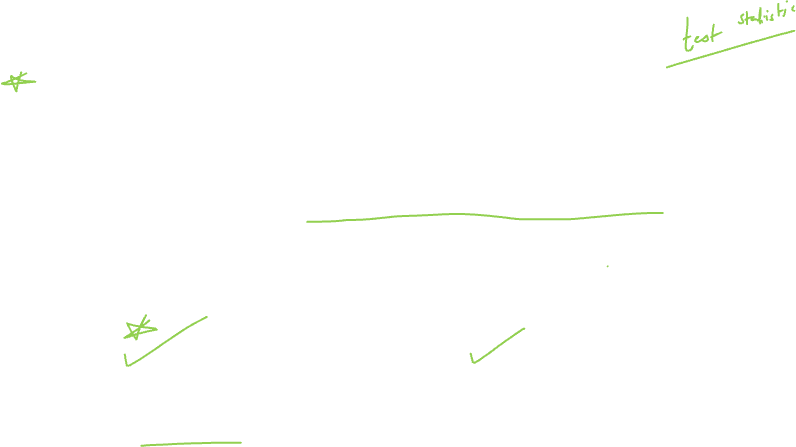 test statistic